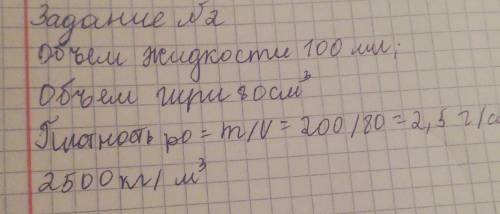 Задание №2
Объем жидкости 100 мл;
Объем гири 80см³
Плотность po = m/V = 200/80 = 2,5 г/с
2500 кг/м³